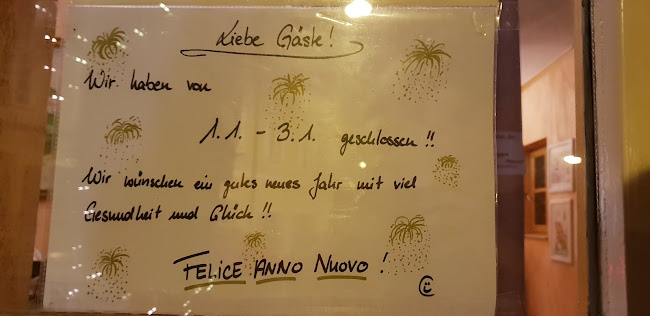 Liebe Gäste!
Wir haben von
1.1. - 3.1. geschlossen!!
Wir wünschen ein gutes neues Jahr mit viel
Gesundheit und Glück!!
FELICE ANNO NUOVO!